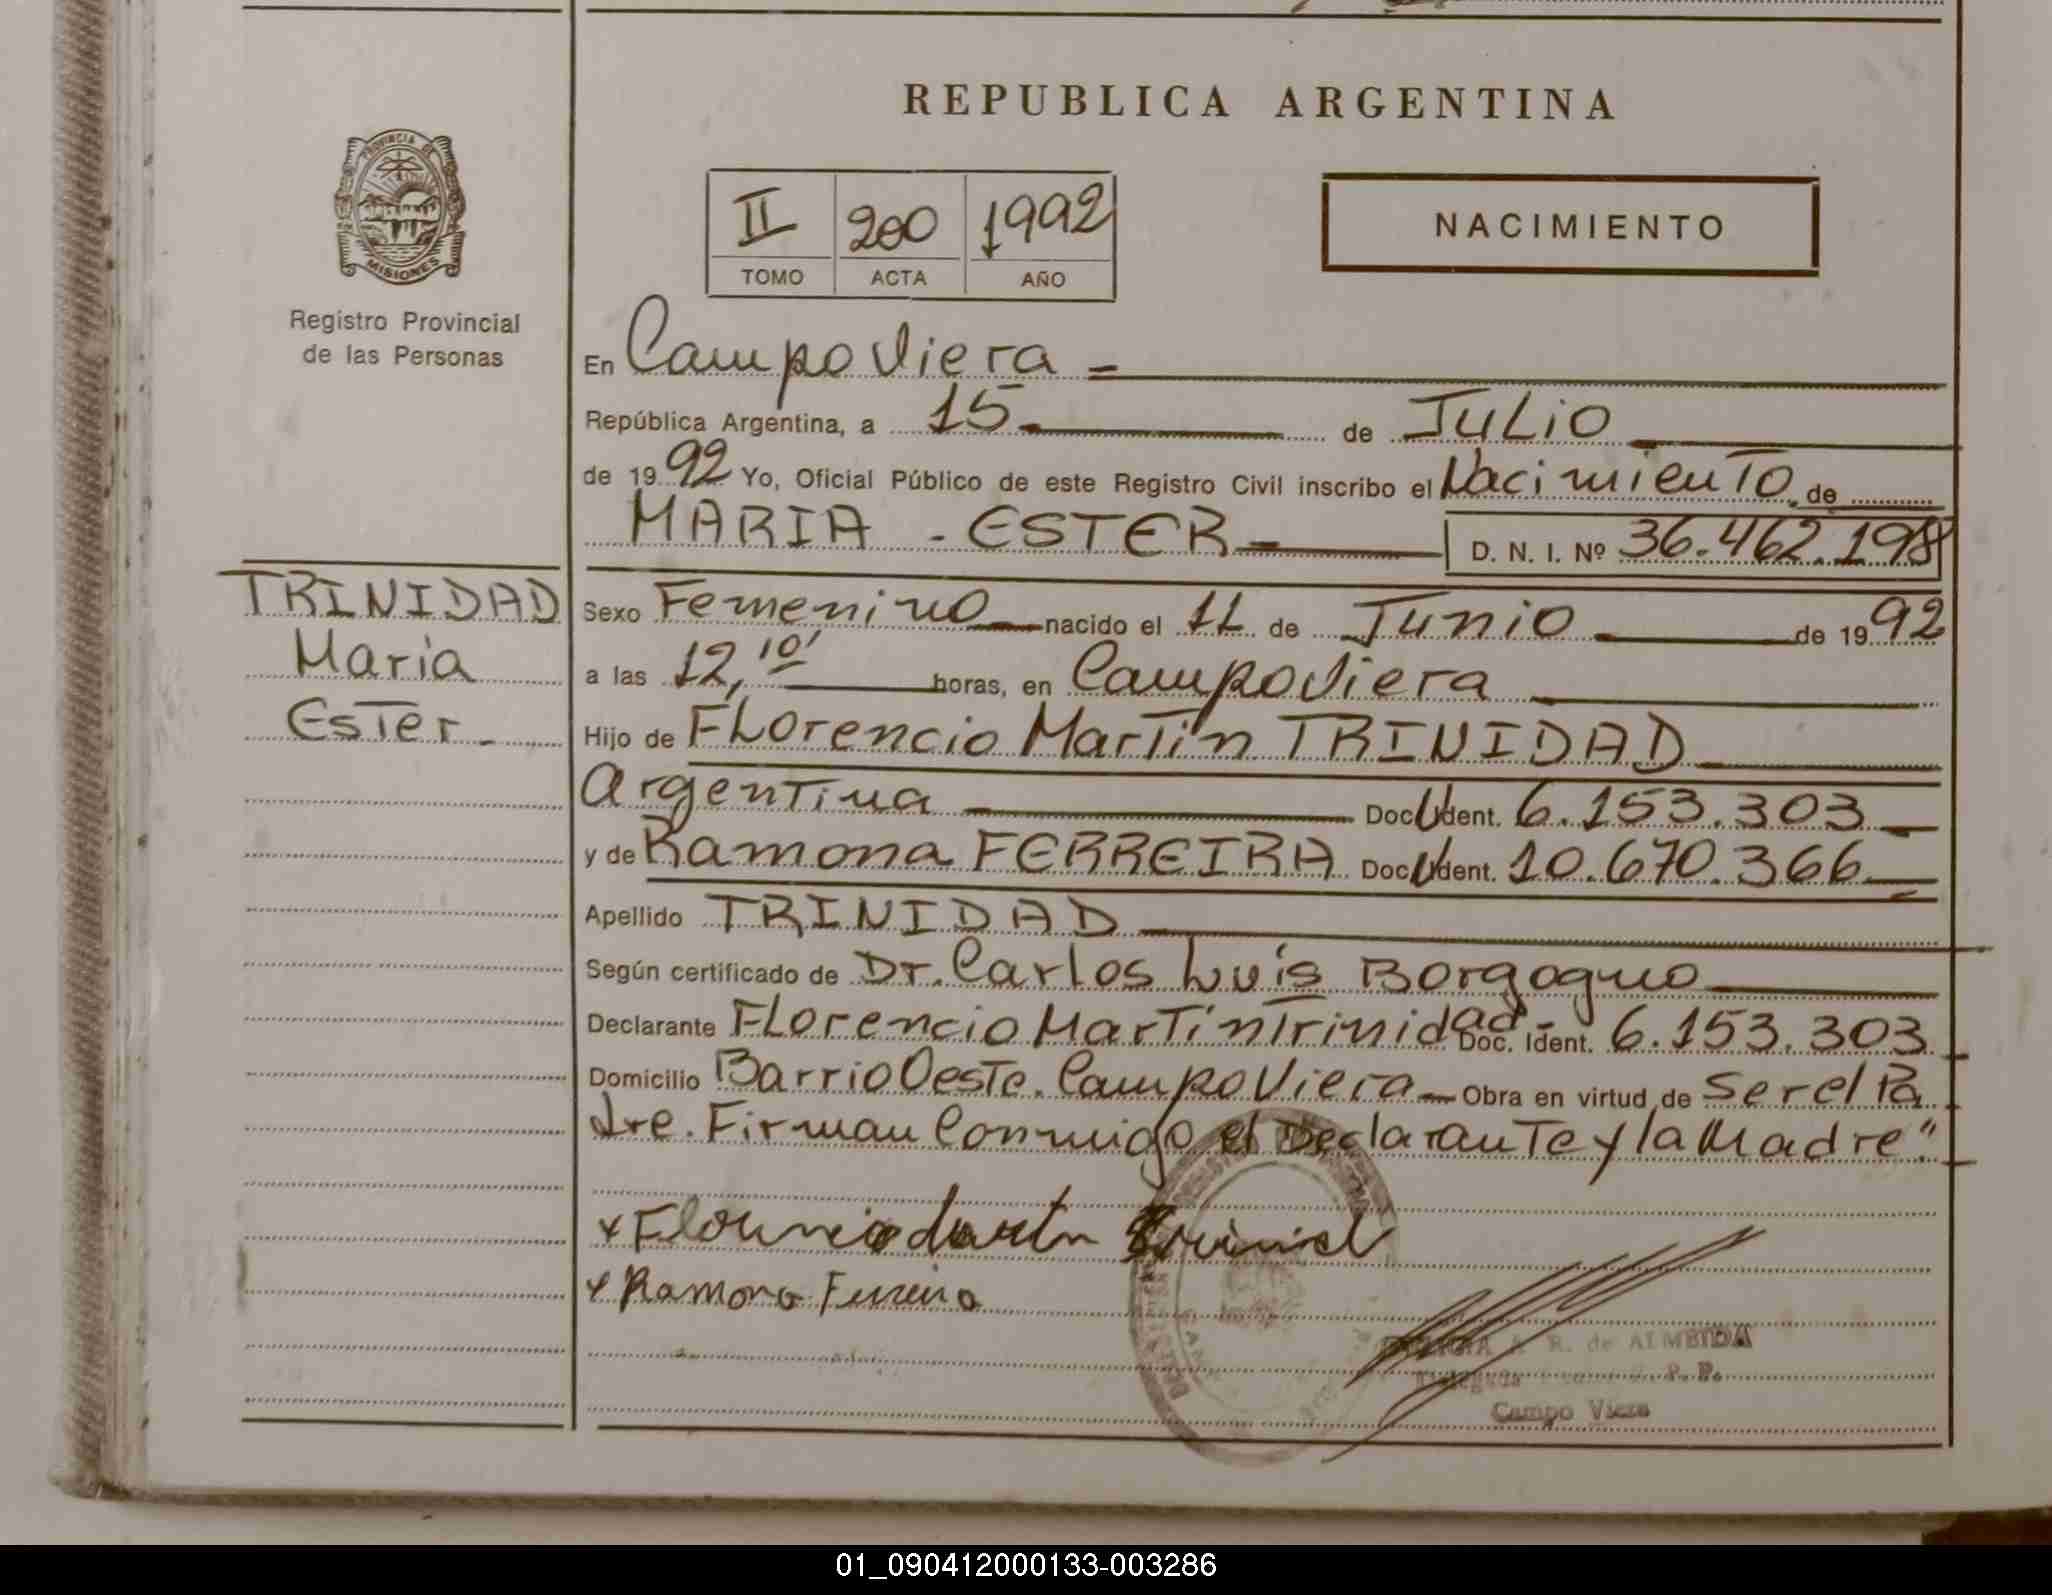 REPUBLICA ARGENTINA
PROVINCIA DE
MISIONES
Registro Provincial
de las Personas
II 200 1992
TOMO ACTA AÑO
NACIMIENTO
En Campo Viera
República Argentina, a 15 de JULIO
de 1992 Yo, Oficial Público de este Registro Civil inscribo el Nacimiento de
MARIA - ESTER D. N. I. Nº 36.462.198
TRINIDAD
María
Ester
Sexo Femenino nacido el 11 de Junio de 1992
a las 12,10' horas, en Campo Viera
Hijo de Florencio Martín TRINIDAD
Argentina Doc. Ident. 6.153.303
y de Ramona FERREIRA Doc. Ident. 10.670.366
Apellido TRINIDAD
Según certificado de Dr. Carlos Luís Borgogno
Declarante Florencio Martín Trinidad Doc. Ident. 6.153.303
Domicilio Barrio Oeste. Campo Viera Obra en virtud de Ser el Pa
dre. Firman Conmigo el Declarante y la Madre."
x Florencio Martin Trinid
x Ramona Ferreira
R. de ALMEIDA
R. P.
Campo Viera
01_090412000133-003286